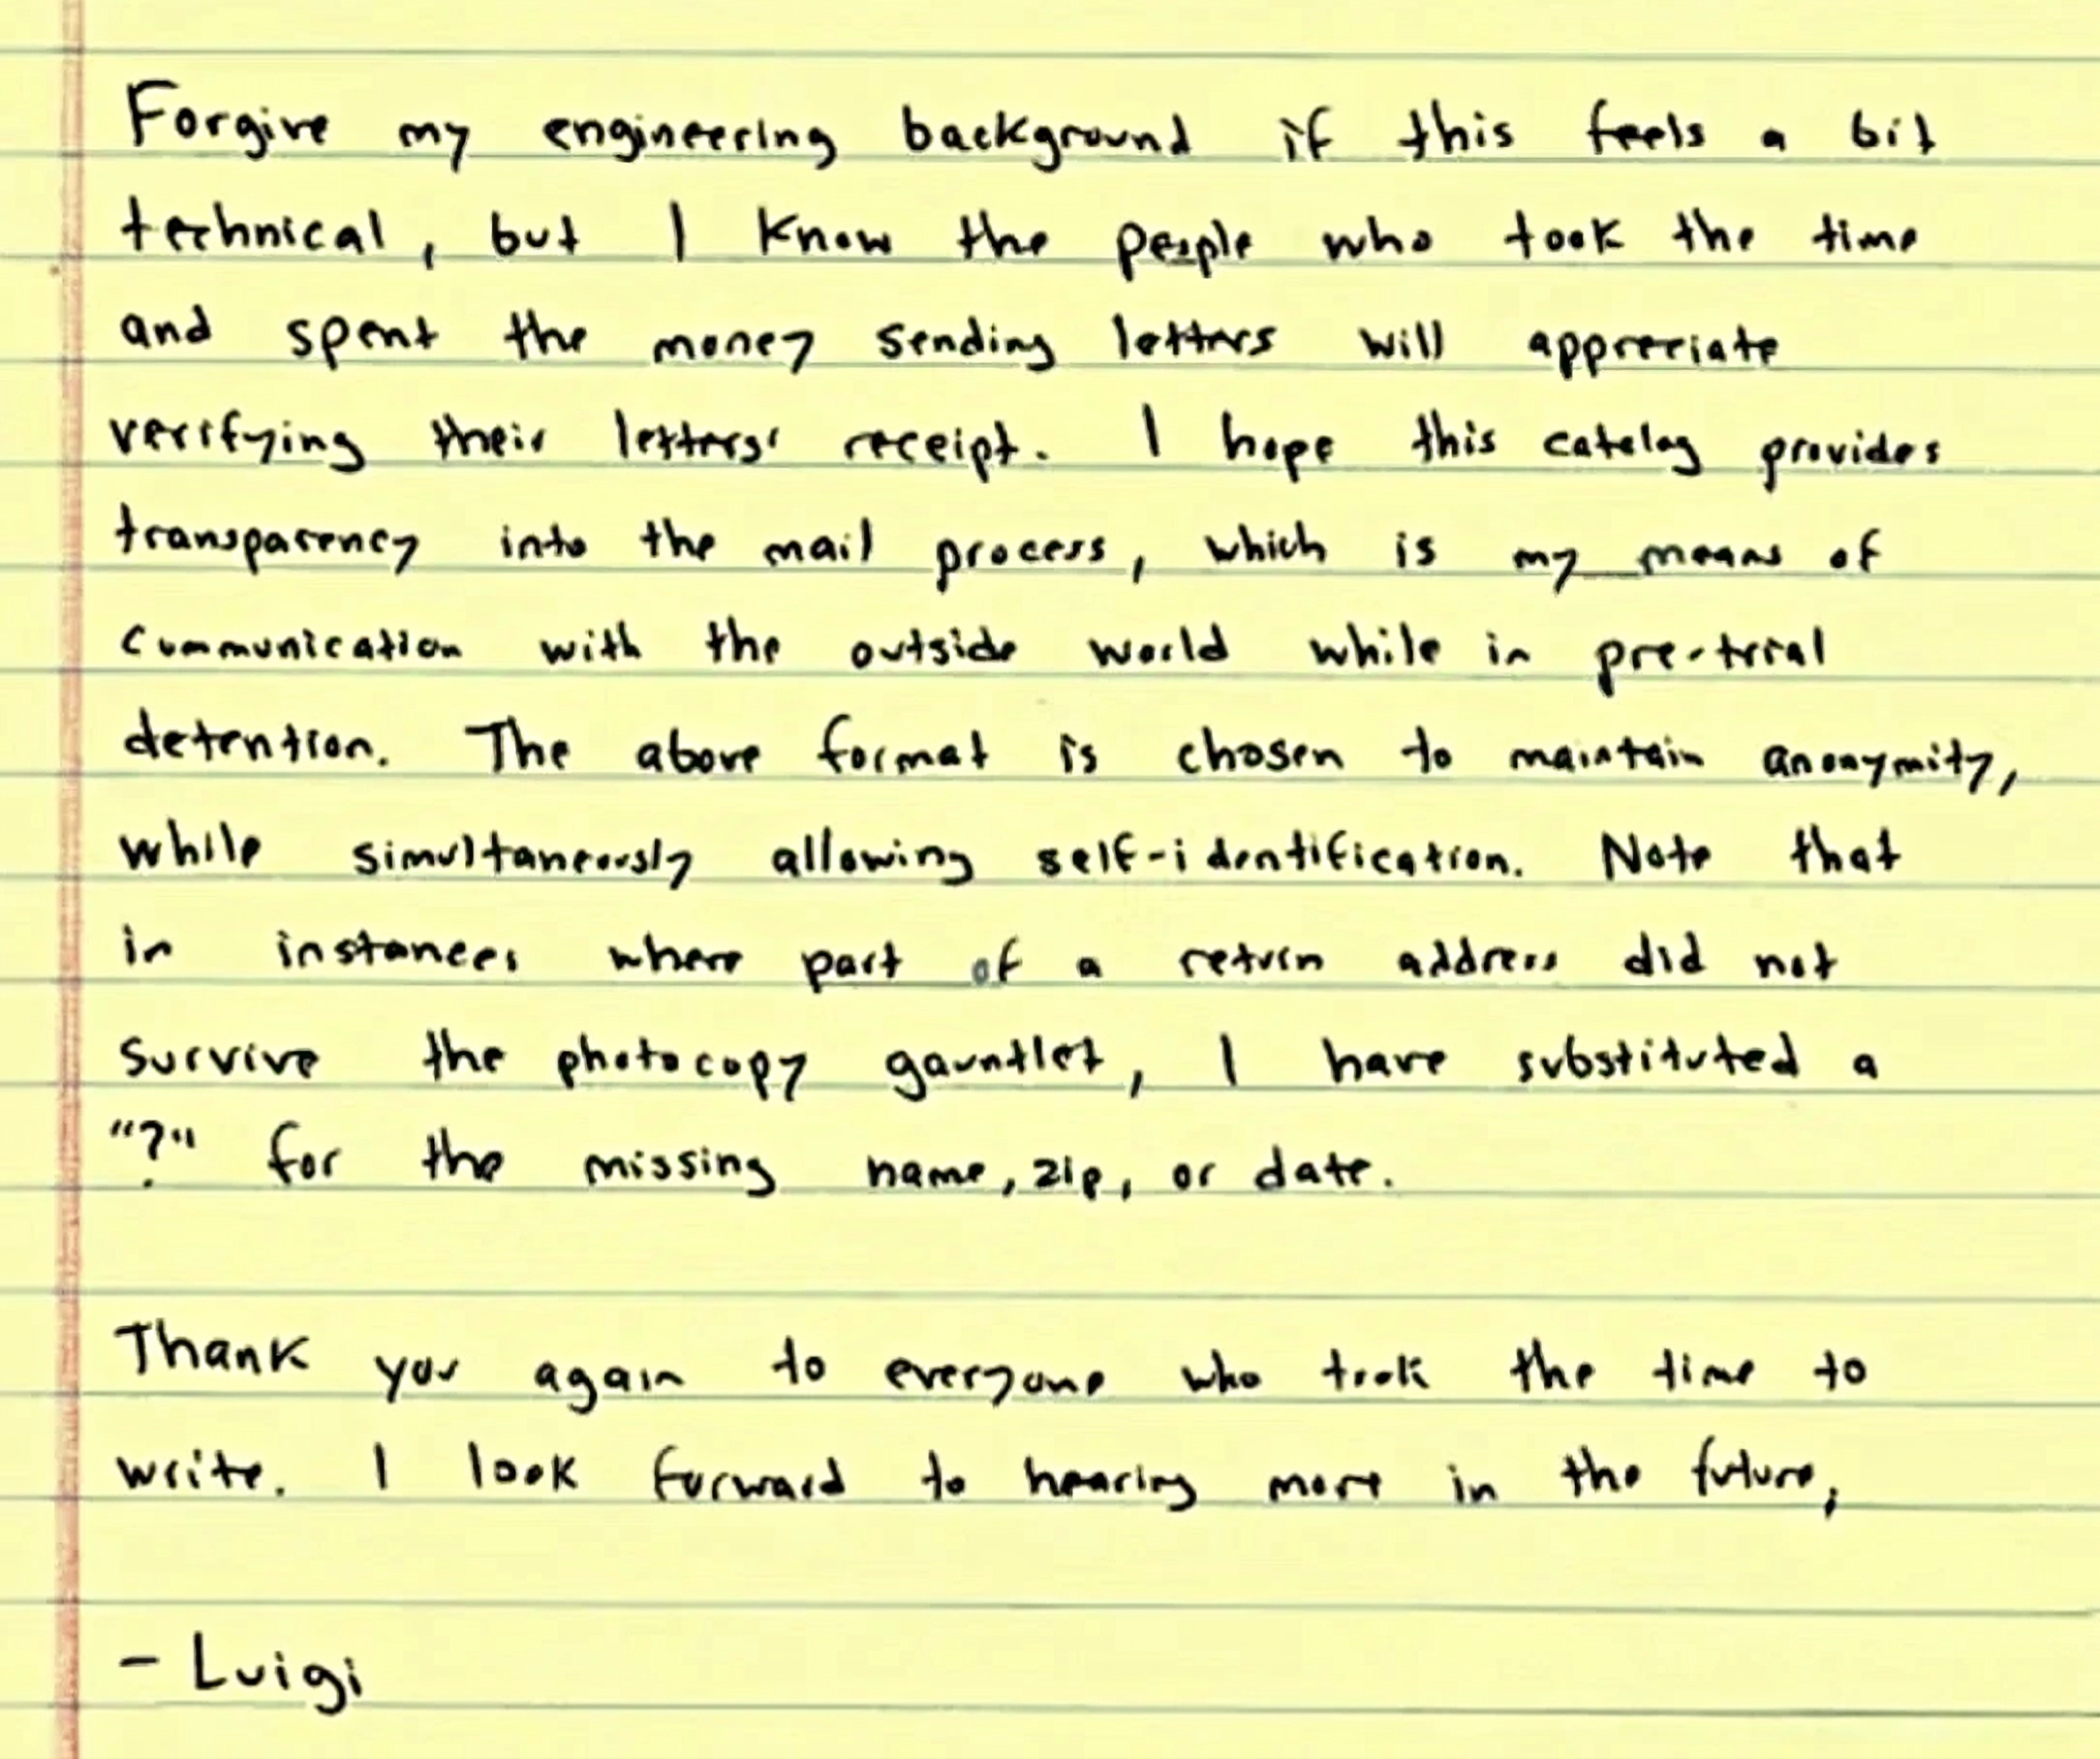 Forgive my engineering background if this feels a bit
technical, but I know the people who took the time
and spent the money sending letters will appreciate
verifying their letters' receipt. I hope this catelog provides
transparency into the mail process, which is my means of
communication with the outside world while in pre-trial
detention. The above format is chosen to maintain anonymity,
while simultaneously allowing self-identification. Note that
in instances where part of a return address did not
survive the photocopy gauntlet, I have substituted a
"?" for the missing name, zip, or date.
Thank you again to everyone who took the time to
write. I look forward to hearing more in the future,
- Luigi